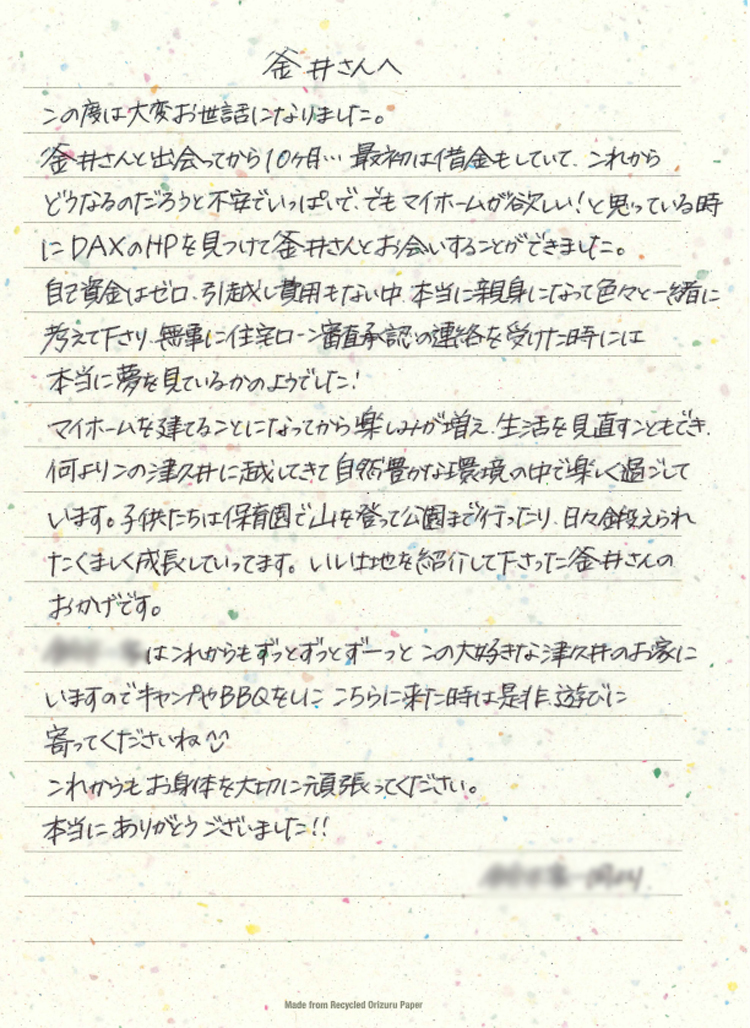 釜井さんへ
この度は大変お世話になりました。
釜井さんと出会ってから10ヶ月… 最初は借金もしていて、これから
どうなるのだろうと不安でいっぱいで、でもマイホームが欲しい!と思っている時
にDAXのHPを見つけて釜井さんとお会いすることができました。
自己資金はゼロ、引越し費用もない中、本当に親身になって色々と一緒に
考えて下さり、無事に住宅ローン審査承認の連絡を受けた時には
本当に夢を見ているかのようでした!
マイホームを建てることになってから楽しみが増え、生活を見直すこともでき、
何よりこの津久井に越してきて自然豊かな環境の中で楽しく過ごして
います。子供たちは保育園で山を登って公園まで行ったり、日々鍛えられ
たくましく成長していってます。いい土地を紹介して下さった釜井さんの
おかげです。
はこれからもずっとずっとずーっとこの大好きな津久井のお家に
いますのでキャンプやBBQをしにこちらに来た時は是非、遊びに
寄ってくださいね
これからもお身体を大切に頑張ってください。
本当にありがとうございました!!
Made from Recycled Orizuru Paper